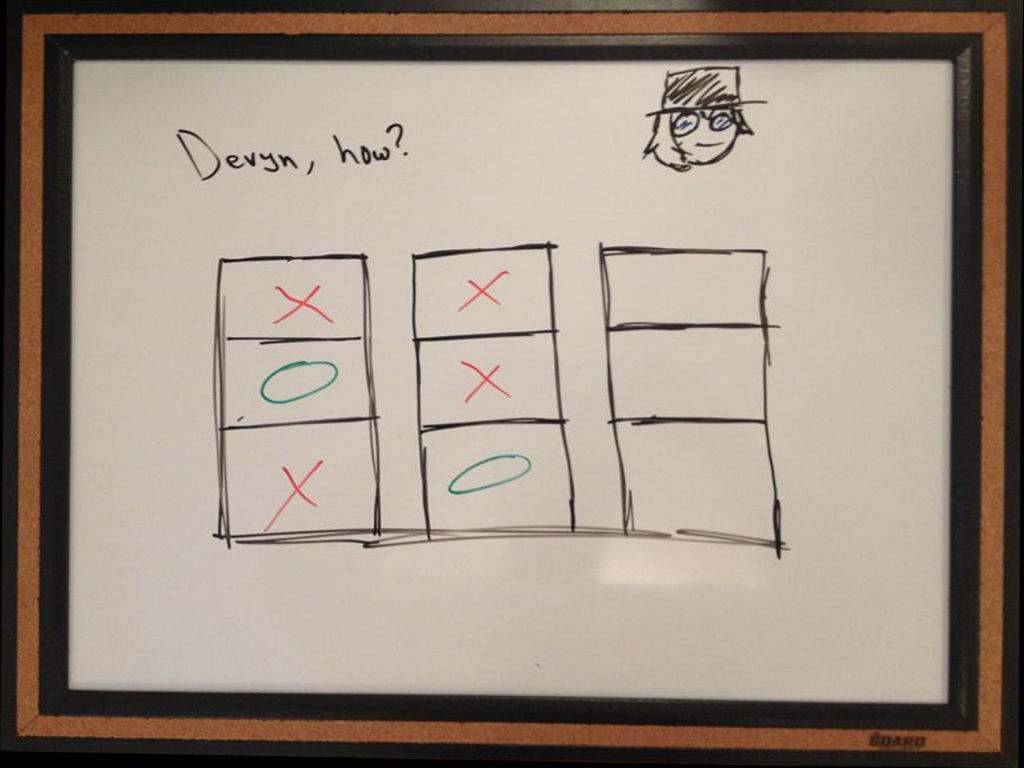 Devyn, how?
X X
O X
X O
BOARD